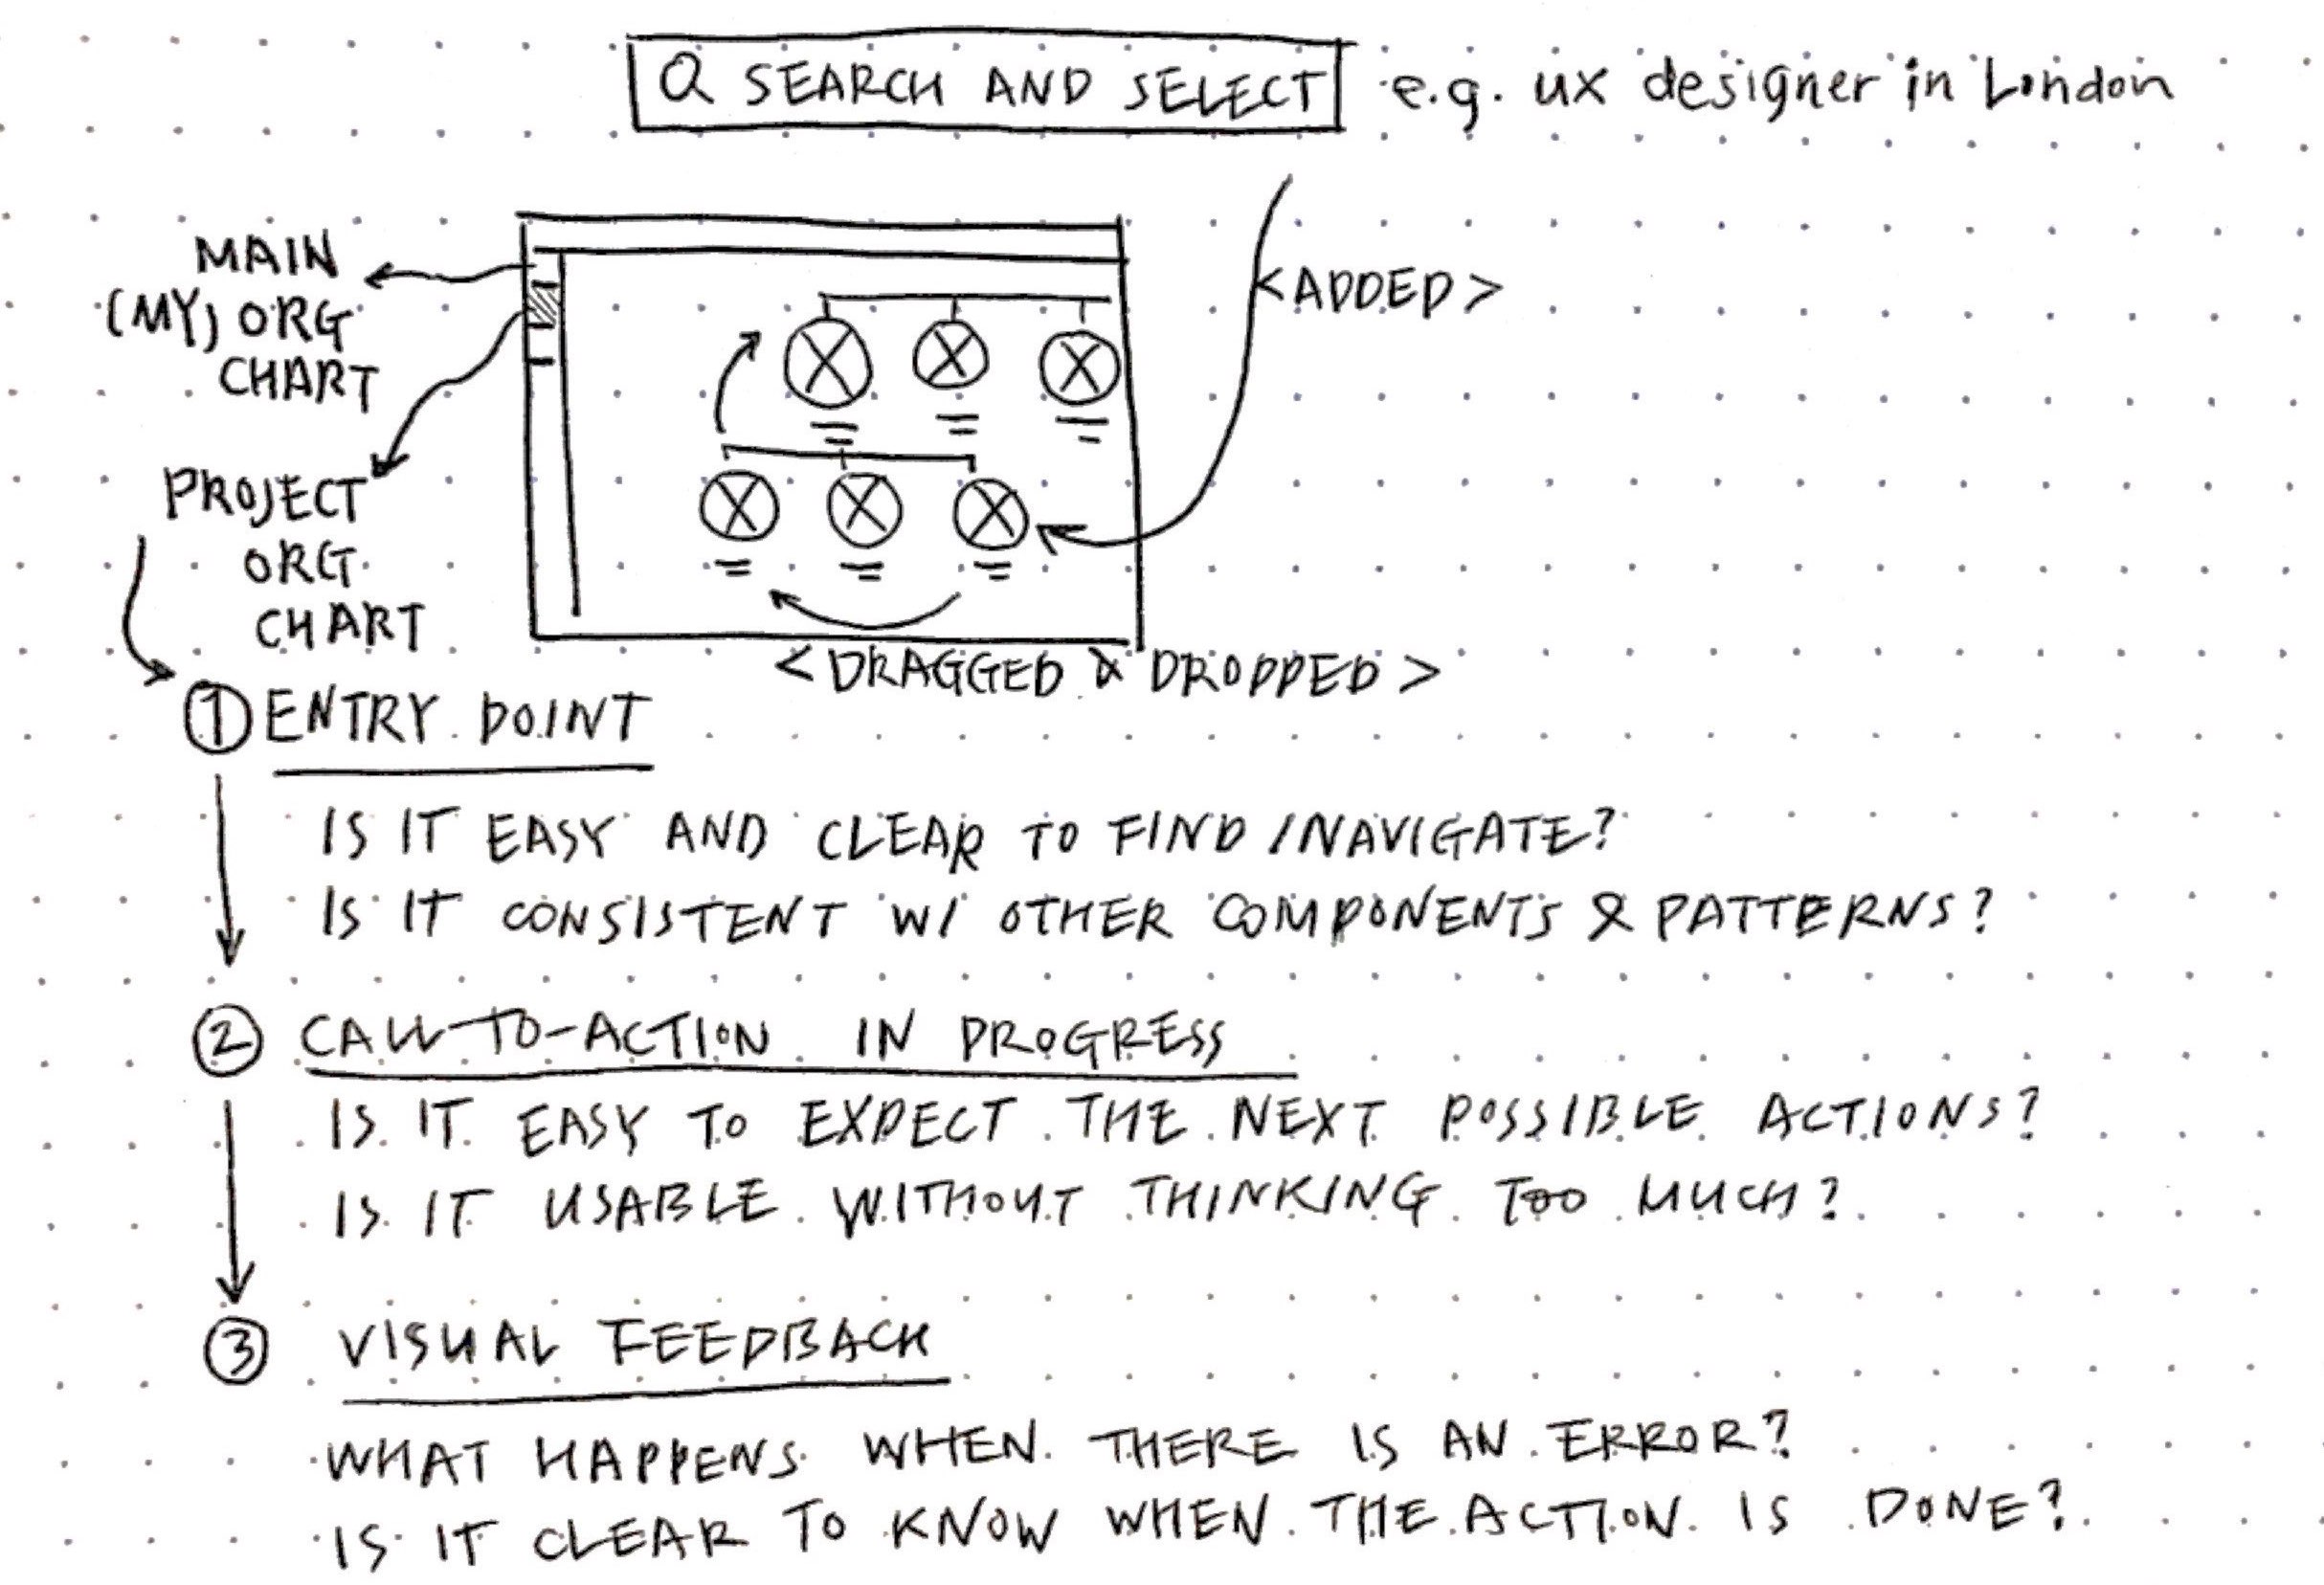 Q SEARCH AND SELECT e.g. ux designer in London
MAIN
(MY) ORG
CHART
<ADDED>
PROJECT
ORG
CHART
<DRAGGED & DROPPED>
1 ENTRY POINT
IS IT EASY AND CLEAR TO FIND/NAVIGATE?
IS IT CONSISTENT W/ OTHER COMPONENTS & PATTERNS?
2 CALL-TO-ACTION IN PROGRESS
IS IT EASY TO EXPECT THE NEXT POSSIBLE ACTIONS?
IS IT USABLE WITHOUT THINKING TOO MUCH?
3 VISUAL FEEDBACK
WHAT HAPPENS WHEN THERE IS AN ERROR?
IS IT CLEAR TO KNOW WHEN THE ACTION IS DONE?